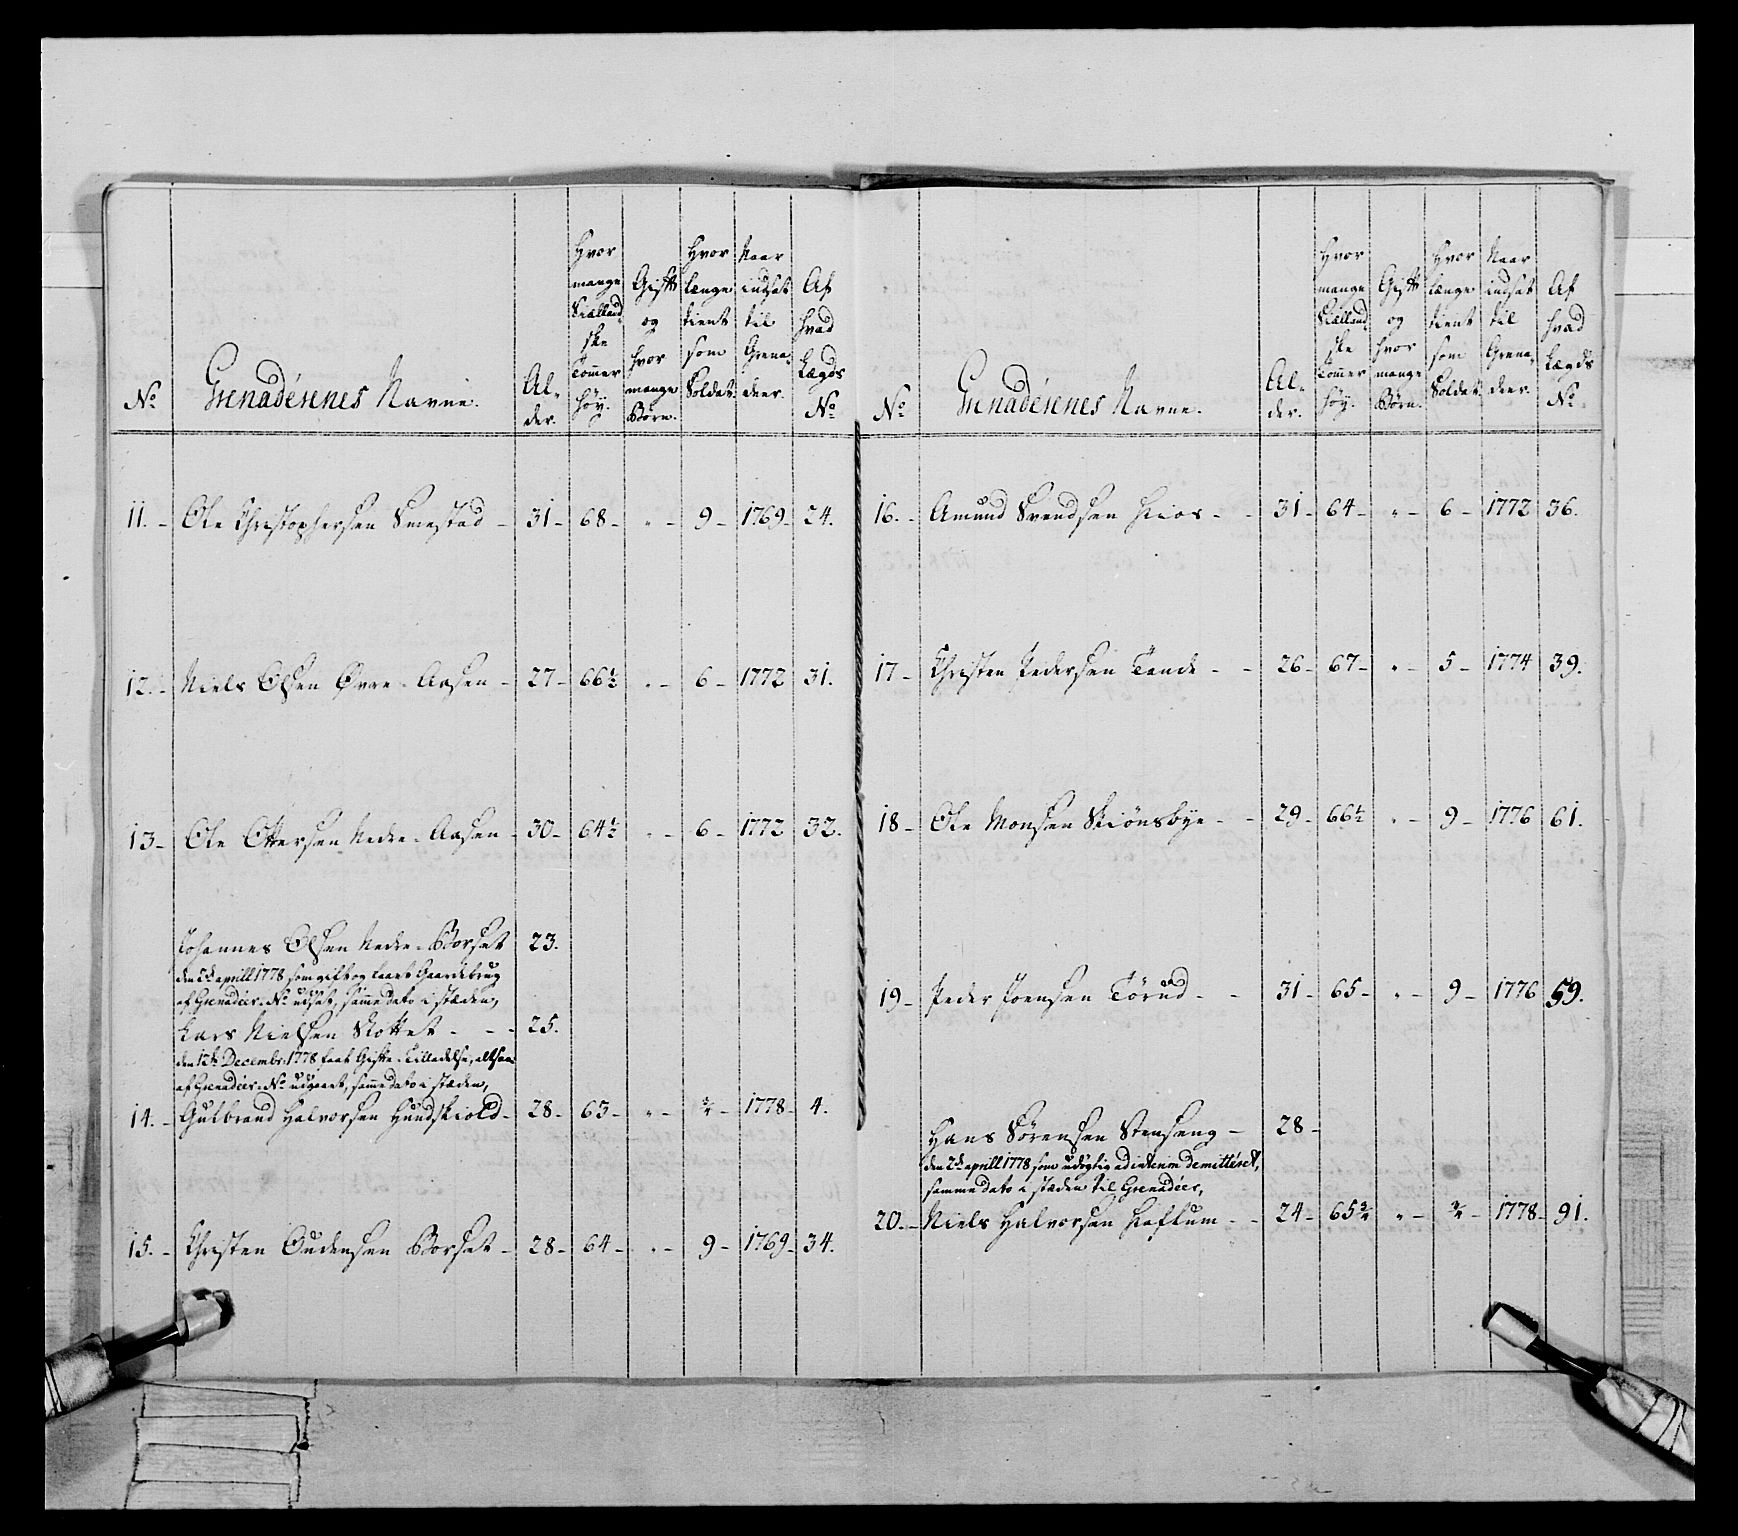 No
Grenadérenes Navne.
Al-
der.
Hvor
mange
Siælland-
ske
Tommer
høy.
Gift
og
hvor
mange
Børn.
Hvor
længe
tient
som
Soldat.
Naar
indsat
til
Grena-
deer.
Af
hvad
Lægds
No
11. - Ole Christophersen Smestad - 31 - 68 - " - 9 - 1769 - 24.
12. - Niels Olsen Øvre-Aasen - 27 - 66½ " - 6 - 1772 31.
13 - Ole Ottersen Nedre-Aasen - 30 - 64½ " - 6 - 1772 32.
Johannes Olsen Nedre-Borset 23.
den 2de aprill 1778 som gift og taart Gaardebrug
af Grenadeer-No udsat, samme dato i stæden,
Lars Nielsen Nottet - - - 25.
den 12te Decembr: 1778 faat Gifte-Tilladelse, altsaa
af Grenadeer-No udgaaet, samme dato i stæden,
14. - Gulbrand Halvorsen Hundskiold - 28 - 63 - " - ¾ - 1778 - 4.
15. - Christen Oudensen Borset - 28 - 64 - " - 9 - 1769 - 34.
No
Grenadérenes Navne.
Al-
der.
Hvor
mange
Siælland-
ske
Tommer
høy.
Gift
og
hvor
mange
Børn.
Hvor
længe
tient
som
Soldat.
Naar
indsat
til
Grena-
deer.
Af
hvad
Lægds
No
16. - Amund Svendsen Kios - - 31 - 64 - " - 6 - 1772 36.
17 - Christen Pedersen Tande - - 26 - 67 - " - 5 - 1774 39.
18 - Ole Monsen Skiønsbye - - 29 - 66½ " - 9 - 1776 61.
19 - Peder Joensen Törud - - 31 - 65 - " - 9 - 1776 59.
Hans Sörensen Stenseng - 28 -
den 2de aprill 1778 som udygtig ad interim demitteret,
samme dato i stæden til Grenadeer,
20. - Niels Halvorsen Hoflum - - 24 - 65¾ " - ¾ - 1778 - 91.